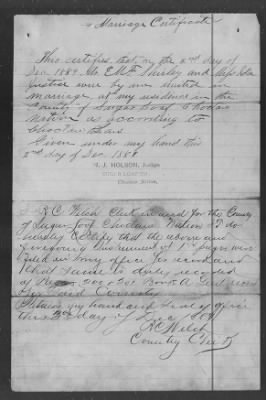 Marriage Certificate
This certifies that on the 2nd day of
Dec. 1889 Mr. E.M. and Miss
Justice were by me united in
marriage at my residence in the
County of Sugar Loaf Choctaw
Nation as according to
Choctaw
Given under my hand this
2nd day of Dec. 1889
N. J. HOLSON, Judge
SUGAR LOAF CO.
Choctaw Nation.
I R.C. Welch Clerk in and for the County
of Sugar Loaf Choctaw Nation I do
hereby Certify that the above and
foregoing Instrument of was
filed in my office for record and
that same is duly recorded
of Pages 200 & 201 Book A
said County
Witness my hand and Seal of office
this 2nd day of Dec 1889
R.C. Welch
County Clerk